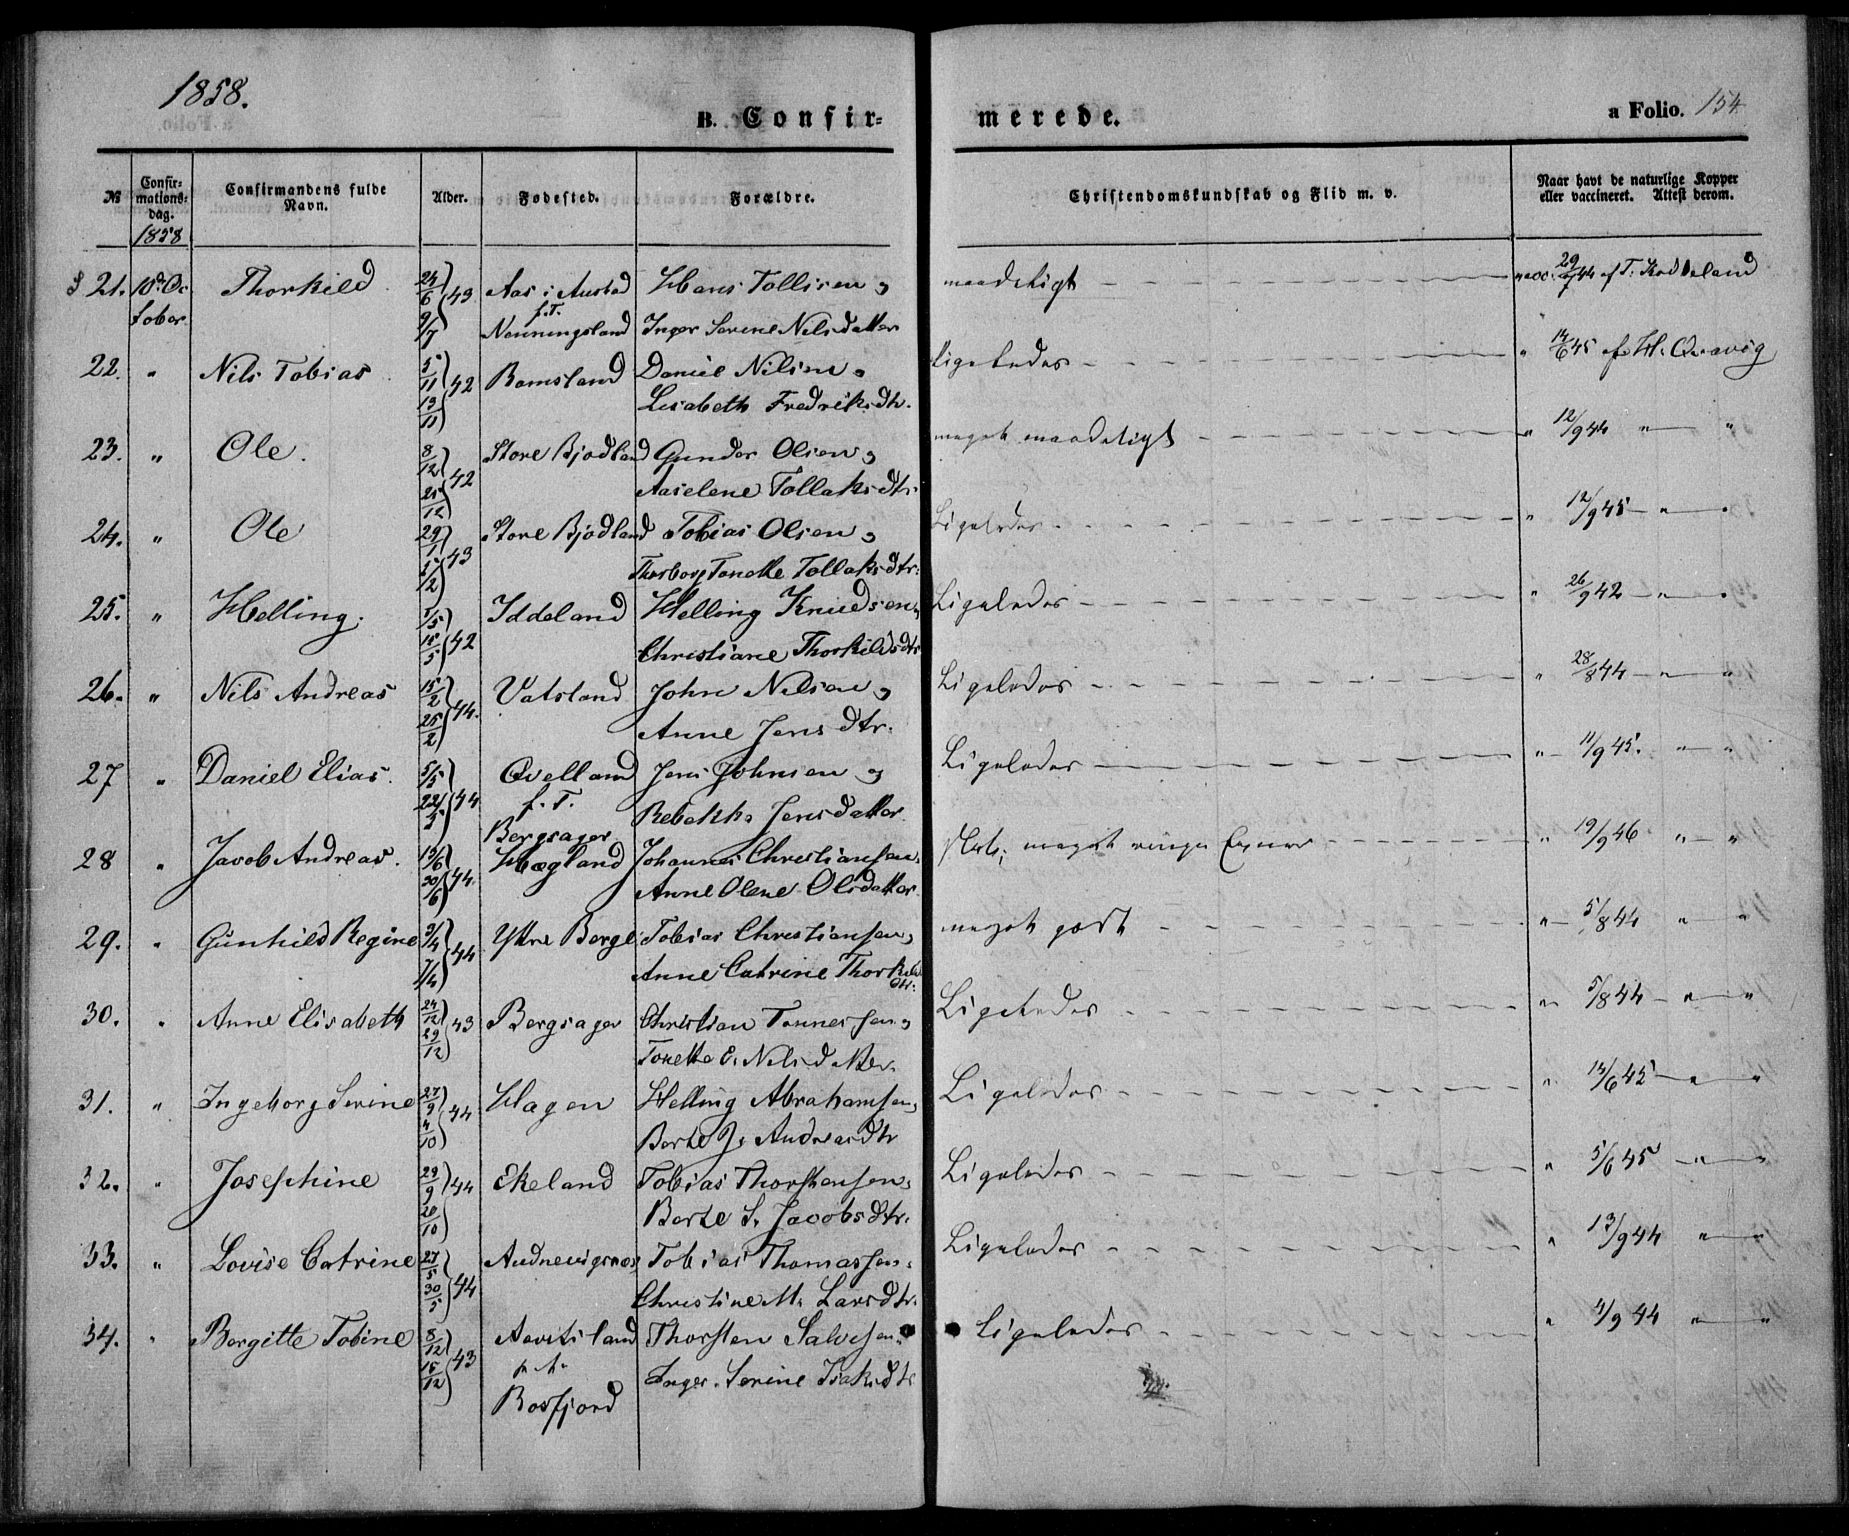 1858.
B. Confir-
merede.
a Folio. 154
№
Confir-
mations-
dag.
1858
Confirmandens fulde
Navn.
Alder.
Fødested.
Forældre.
Christendomskundskab og Flid m. v.
Naar havt de naturlige Kopper
eller vaccineret. Attest derom.
21. 10de Oc- Thorkild 24/6 43 Aas i Austad Hans Tollisen og maadeligt 29/7 44 af T.
tober 9/7 f. T. Nenningsland Inger Serine Nilsdatter
22. " Nils Tobias 5/11 42 Bomsland Daniel Nilsen og ligeledes " 14/6 45 af H. Qvavig
13/11 Lisabeth Fredriksdtr.
23. " Ole. 8/12 42 Store Bjødland Gunder Olsen og meget maadeligt " 12/9 44 " "
25/12 Aaselene Tollaksdtr.
24. " Ole 29/1 43 Store Bjødland Tobias Olsen og Ligeledes " 12/9 45 " "
/2 Thorborg Tonette Tollaksdtr.
25. " Helling. 1/5 42 Iddeland Helling Knudsen Ligeledes " 26/9 42 " "
15/5 Christiane Thorkildsdtr
26. " Nils Andreas 15/2 44. Vatsland John Nilsen og Ligeledes " 28/8 44 " "
25/2 Anne Jensdtr.
27 " Daniel Elias. 5/5 44 Qvelland Jens Johnsen og Ligeledes " 11/9 45. " "
22/5 f. T. Bergsager Rebekka Jensdatter
28 " Jacob Andreas. 13/6 44. Hægland Johannes Christiansen slet; meget ringe Evner " 19/9 46 " "
30/6 Anne Olene Olsdatter
29. " Gunhild Regine 3/4 44 Yttre Berge Tobias Christiansen, meget godt " 5/8 44 " "
7/4 Anne Catrine Thorkilsdtr.
30. " Anne Elisabeth 24/12 43 Bergsager Christian Tønnessen og Ligeledes " 5/8 44 " "
29/12 Tonette E. Nilsdatter.
31. " Ingeborg Serine 27/9 44 Hagen Helling Abrahamsen, Ligeledes " 14/6 45 " "
4/10 Berte J. Andreasdtr
32. " Josephine 29/9 44 Ekeland Tobias Thorstensen, Ligeledes " 5/6 45 " "
20/10 Berte S. Jacobsdtr.
33. " Lovise Catrine 27/5 44 Audnevigsnæs Tobias Thomassen, Ligeledes " 13/9 44 " "
30/5 Christine M. Larsdtr.
34. " Bergitte Tobine 8/12 43 Aavitsland Thorsten Salvesen Ligeledes " 4/9 44 " "
15/12 Rosfjord Inger Serine Isaksdtr